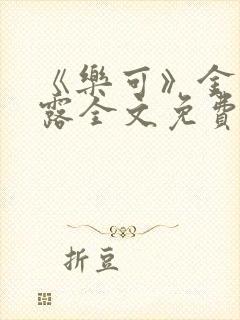 《樂可》金
露全文免費
折豆